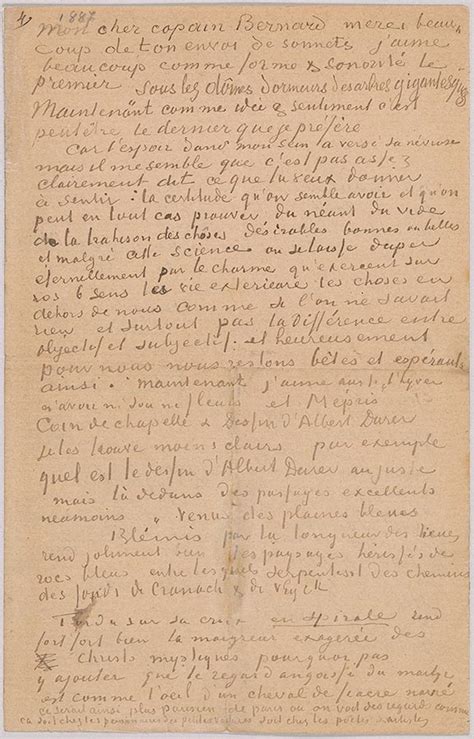 1887
Mon cher copain Bernard merci beau-
coup de ton envoi de sonnets j'aime
beaucoup comme forme & sonorité le
premier sous les dômes dormeurs des arbres gigantesques
Maintenant comme idée & sentiment c'est
peut être le dernier que je préfère
Car l'espoir dans mon sein a versé sa névrose
mais il me semble que c'est pas assez
clairement dit ce que tu veux donner
à sentir : la certitude qu'on semble avoir et qu'on
peut en tout cas prouver, du néant du vide
de la trahison des choses désirables bonnes ou belles
et malgré cette science on se laisse duper
éternellement par le charme qu'exercent sur
nos 6 sens la vie extérieure les choses en
dehors de nous comme si l'on ne savait
rien et surtout pas la différence entre
objectif et subjectif. et heureusement
pour nous nous restons bêtes et espérant
ainsi. Maintenant j'aime aussi l'hyver
n'avoir ni sou ni fleurs et Mépris
Coin de chapelle & Dessin d'Albert Durer
je les trouve moins clairs par exemple
quel est le dessin d'Albert Durer au juste
mais là dedans des passages excellents
neamoins „ Venus des plaines bleues
Blémis par la longueur des lieues
rend joliment bien les paysages hérissés de
rocs bleus entre lesquels serpentent des chemins
des fonds de Cranach & de v Eyck
Tordu sur sa croix en spirale rend
fort fort bien la maigreur exagérée des
Christs mystiques pourquoi pas
y ajouter que le regard angoissé du martyr
est comme l'oeil d'un cheval de fiacre navré
ce serait ainsi plus parisien de paris ou on voit des regards comme
ca soit chez les poètes & artistes